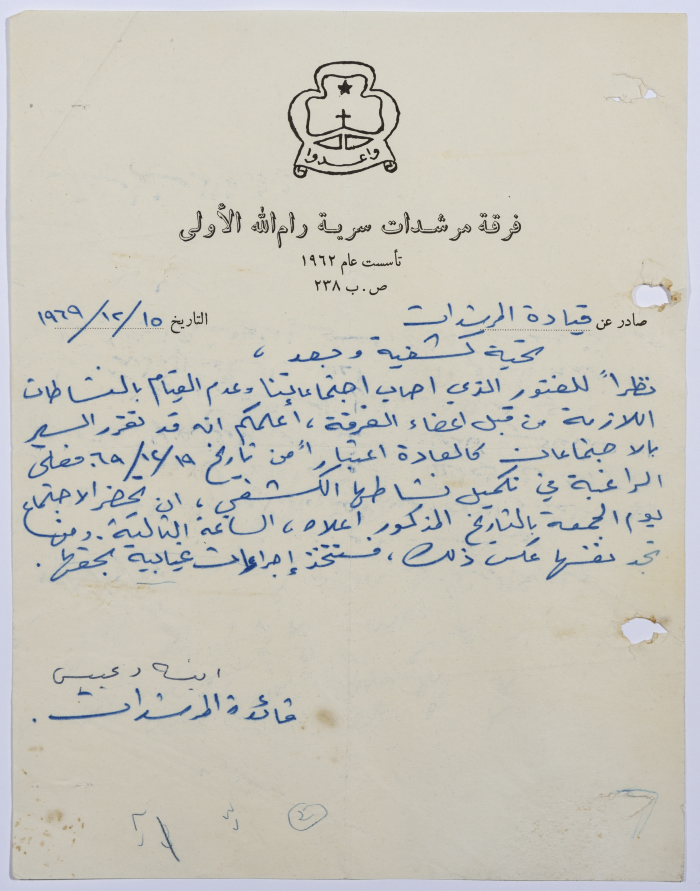 واعدوا
فرقة مرشدات سرية رام الله الأولى
تأسست عام ١٩٦٢
ص.ب ٢٣٨
صادر عن قيادة المرشدات التاريخ ١٩٦٩/١٢/١٥
تحية كشفية وبعد ،
نظراً للفتور الذي اصاب اجتماعاتنا وعدم القيام بالنشاطات
اللازمة من قبل اعضاء الفرقة ، اعلمكم انه قد تقرر السير
بالاجتماعات كالعادة اعتباراً من تاريخ ٦٩/١٢/١٩. فعلى
الراغبة في تكميل نشاطها الكشفي ، ان تحضر الاجتماع
يوم الجمعة بالتاريخ المذكور اعلاه ، الساعة الثالثة. ومن
تجد نفسها عكس ذلك ، فستتخذ إجراءات غيابية بحقها .
قائدة المرشدات .